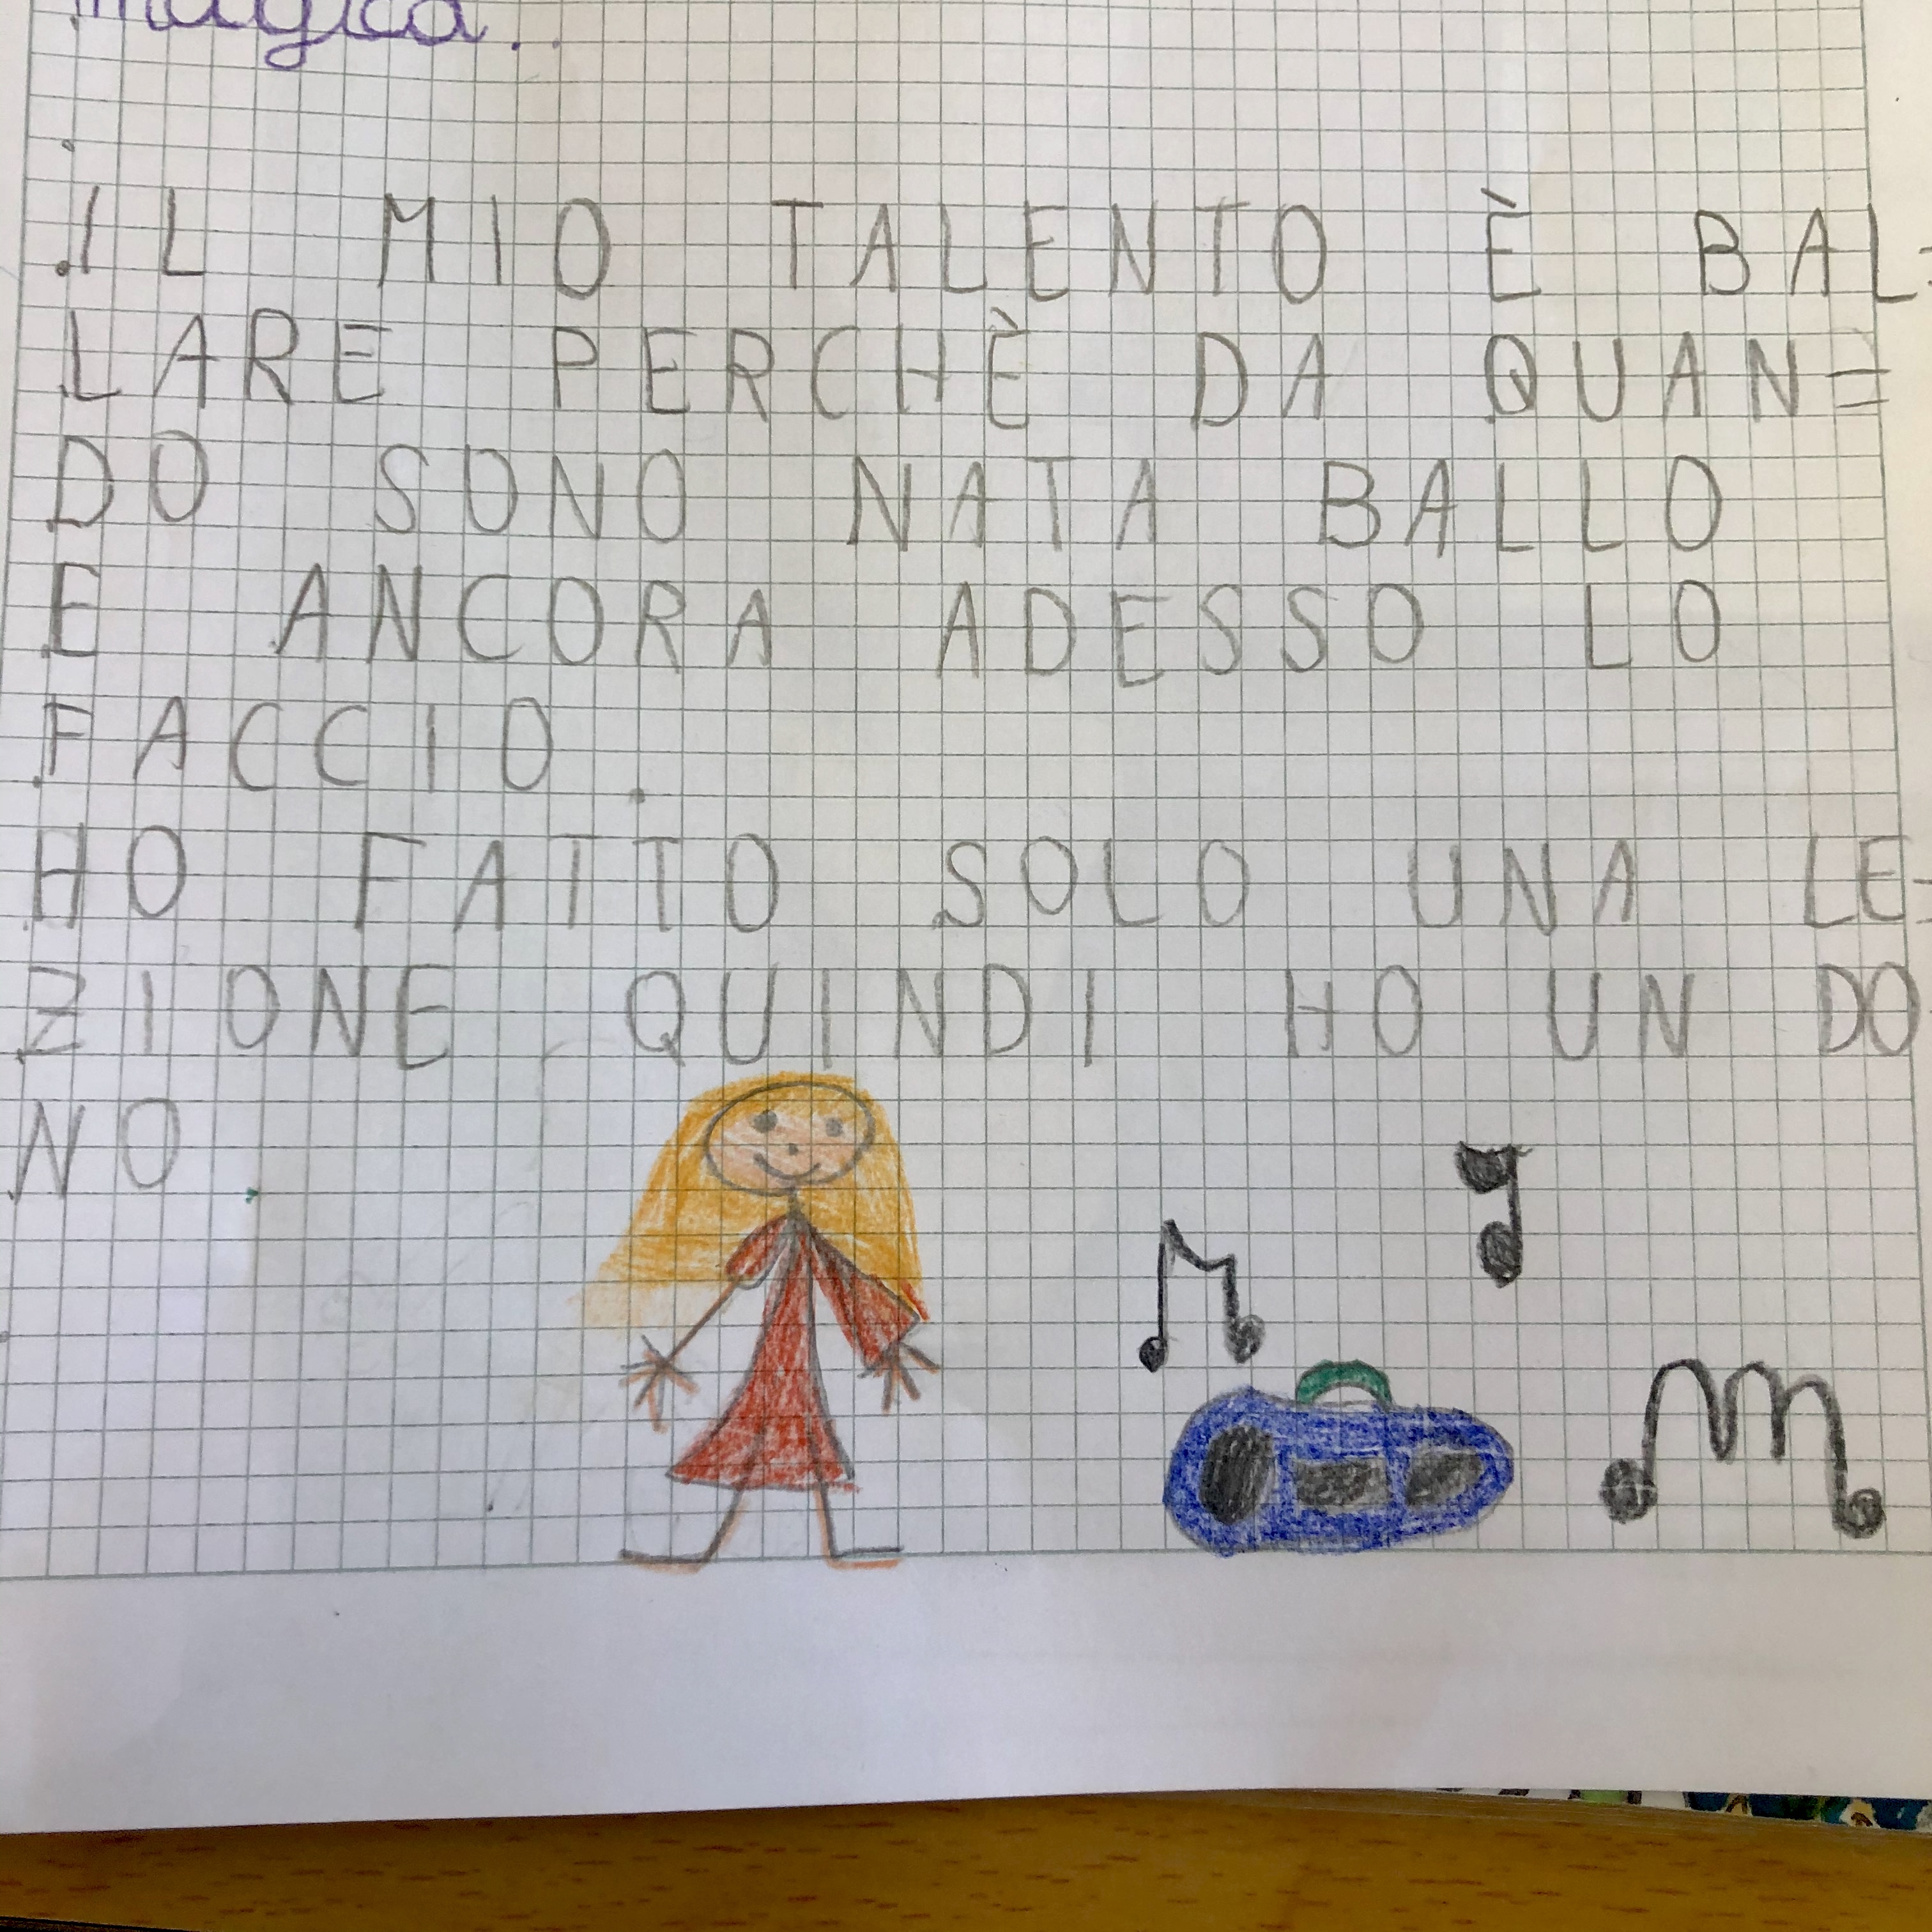 magica..
.IL MIO TALENTO È BAL=
LARE PERCHÈ DA QUAN=
DO SONO NATA BALLO
E ANCORA ADESSO LO
FACCIO.
HO FATTO SOLO UNA LE=
ZIONE QUINDI HO UN DO
NO.